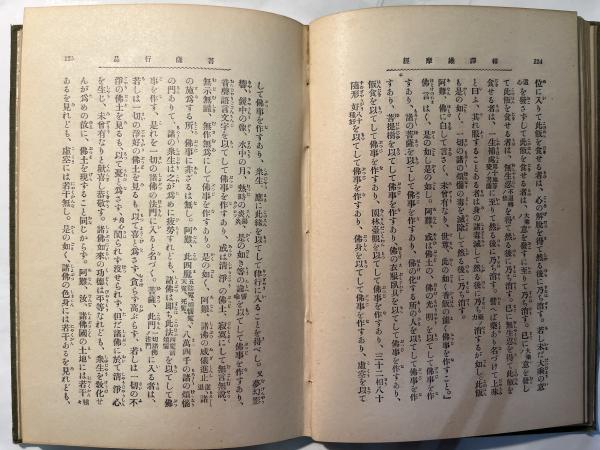 經摩維譯和
224
位に入りて此飯を食せる者は、心の解脫を得て然る後に乃ち治す。若し未だ大乘の意を發さずして此飯を食せる者は、意を發すに至りて乃ち治す。已に意を發し
て此飯を食せる者は、無生忍を得て然る後に乃ち治す。已に無生忍を得て此飯を
食せる者は、一生補處に至りて然る後に乃ち治す。譬へば藥あり名づけて上味
と曰ふ、其れ服することある者は身の諸毒滅して然る後に乃ち治するが如し。此飯
も是の如く、一切の諸の煩惱の毒を滅除して然る後に乃ち治す。
阿難、佛に白して言さく、未曾有なり、世尊、此の如く香飯の能く佛事を作すこと。
佛言はく、是の如し是の如し。阿難、或は佛土の、佛の光明を以てして佛事を作
すあり、諸の菩薩を以てして佛事を作すあり、佛の化する所の人を以てして佛事を作
すあり、菩提樹を以てして佛事を作すあり、佛の衣服臥具を以てして佛事を作すあり、
飯食を以てして佛事を作すあり、園林臺觀を以てして佛事を作すあり、三十二相八十
隨形好を以てして佛事を作すあり、佛身を以てして佛事を作すあり、虛空を以て
品行薩菩
225
して佛事を作すあり、衆生、應に此緣を以てして律行に入ることを得べし。又夢幻影
響、鏡中の像、水中の月、熱時の炎、是の如き等の喩を以てして佛事を作すあり、
音聲語言文字を以てして佛事を作すあり、或は清淨の佛土、寂寞にして無言無說
無示無識、無作無爲にして佛事を作すあり。是の如く、阿難、諸佛の威儀進止、諸
の施爲する所、佛事に非ざるは無し。阿難、此四魔、八萬四千の諸の煩惱
の門あり、諸の衆生は之が爲めに疲勞すれども、諸佛は卽ち此法を以てして佛
事を作す、是れを一切の諸佛の法門に入ると名づく。菩薩、此門に入る者は、
若しは一切の淨好の佛土を見るも、以て喜と爲さず、貪らず高ぶらず、若しは一切の不
淨の佛土を見るも、以て憂と爲さず、閡られず沒せられず、但だ諸佛に於て清淨心
を生じ、未曾有なりと歡喜し恭敬す。諸佛如來の功德は平等なれども、衆生を敎化せ
んが爲めの故に、佛土を現すること同じからず。阿難、汝、諸佛國の土地には若干
あるを見れども、虛空には若干無し。是の如く、諸佛の色身には若干あるを見れども、